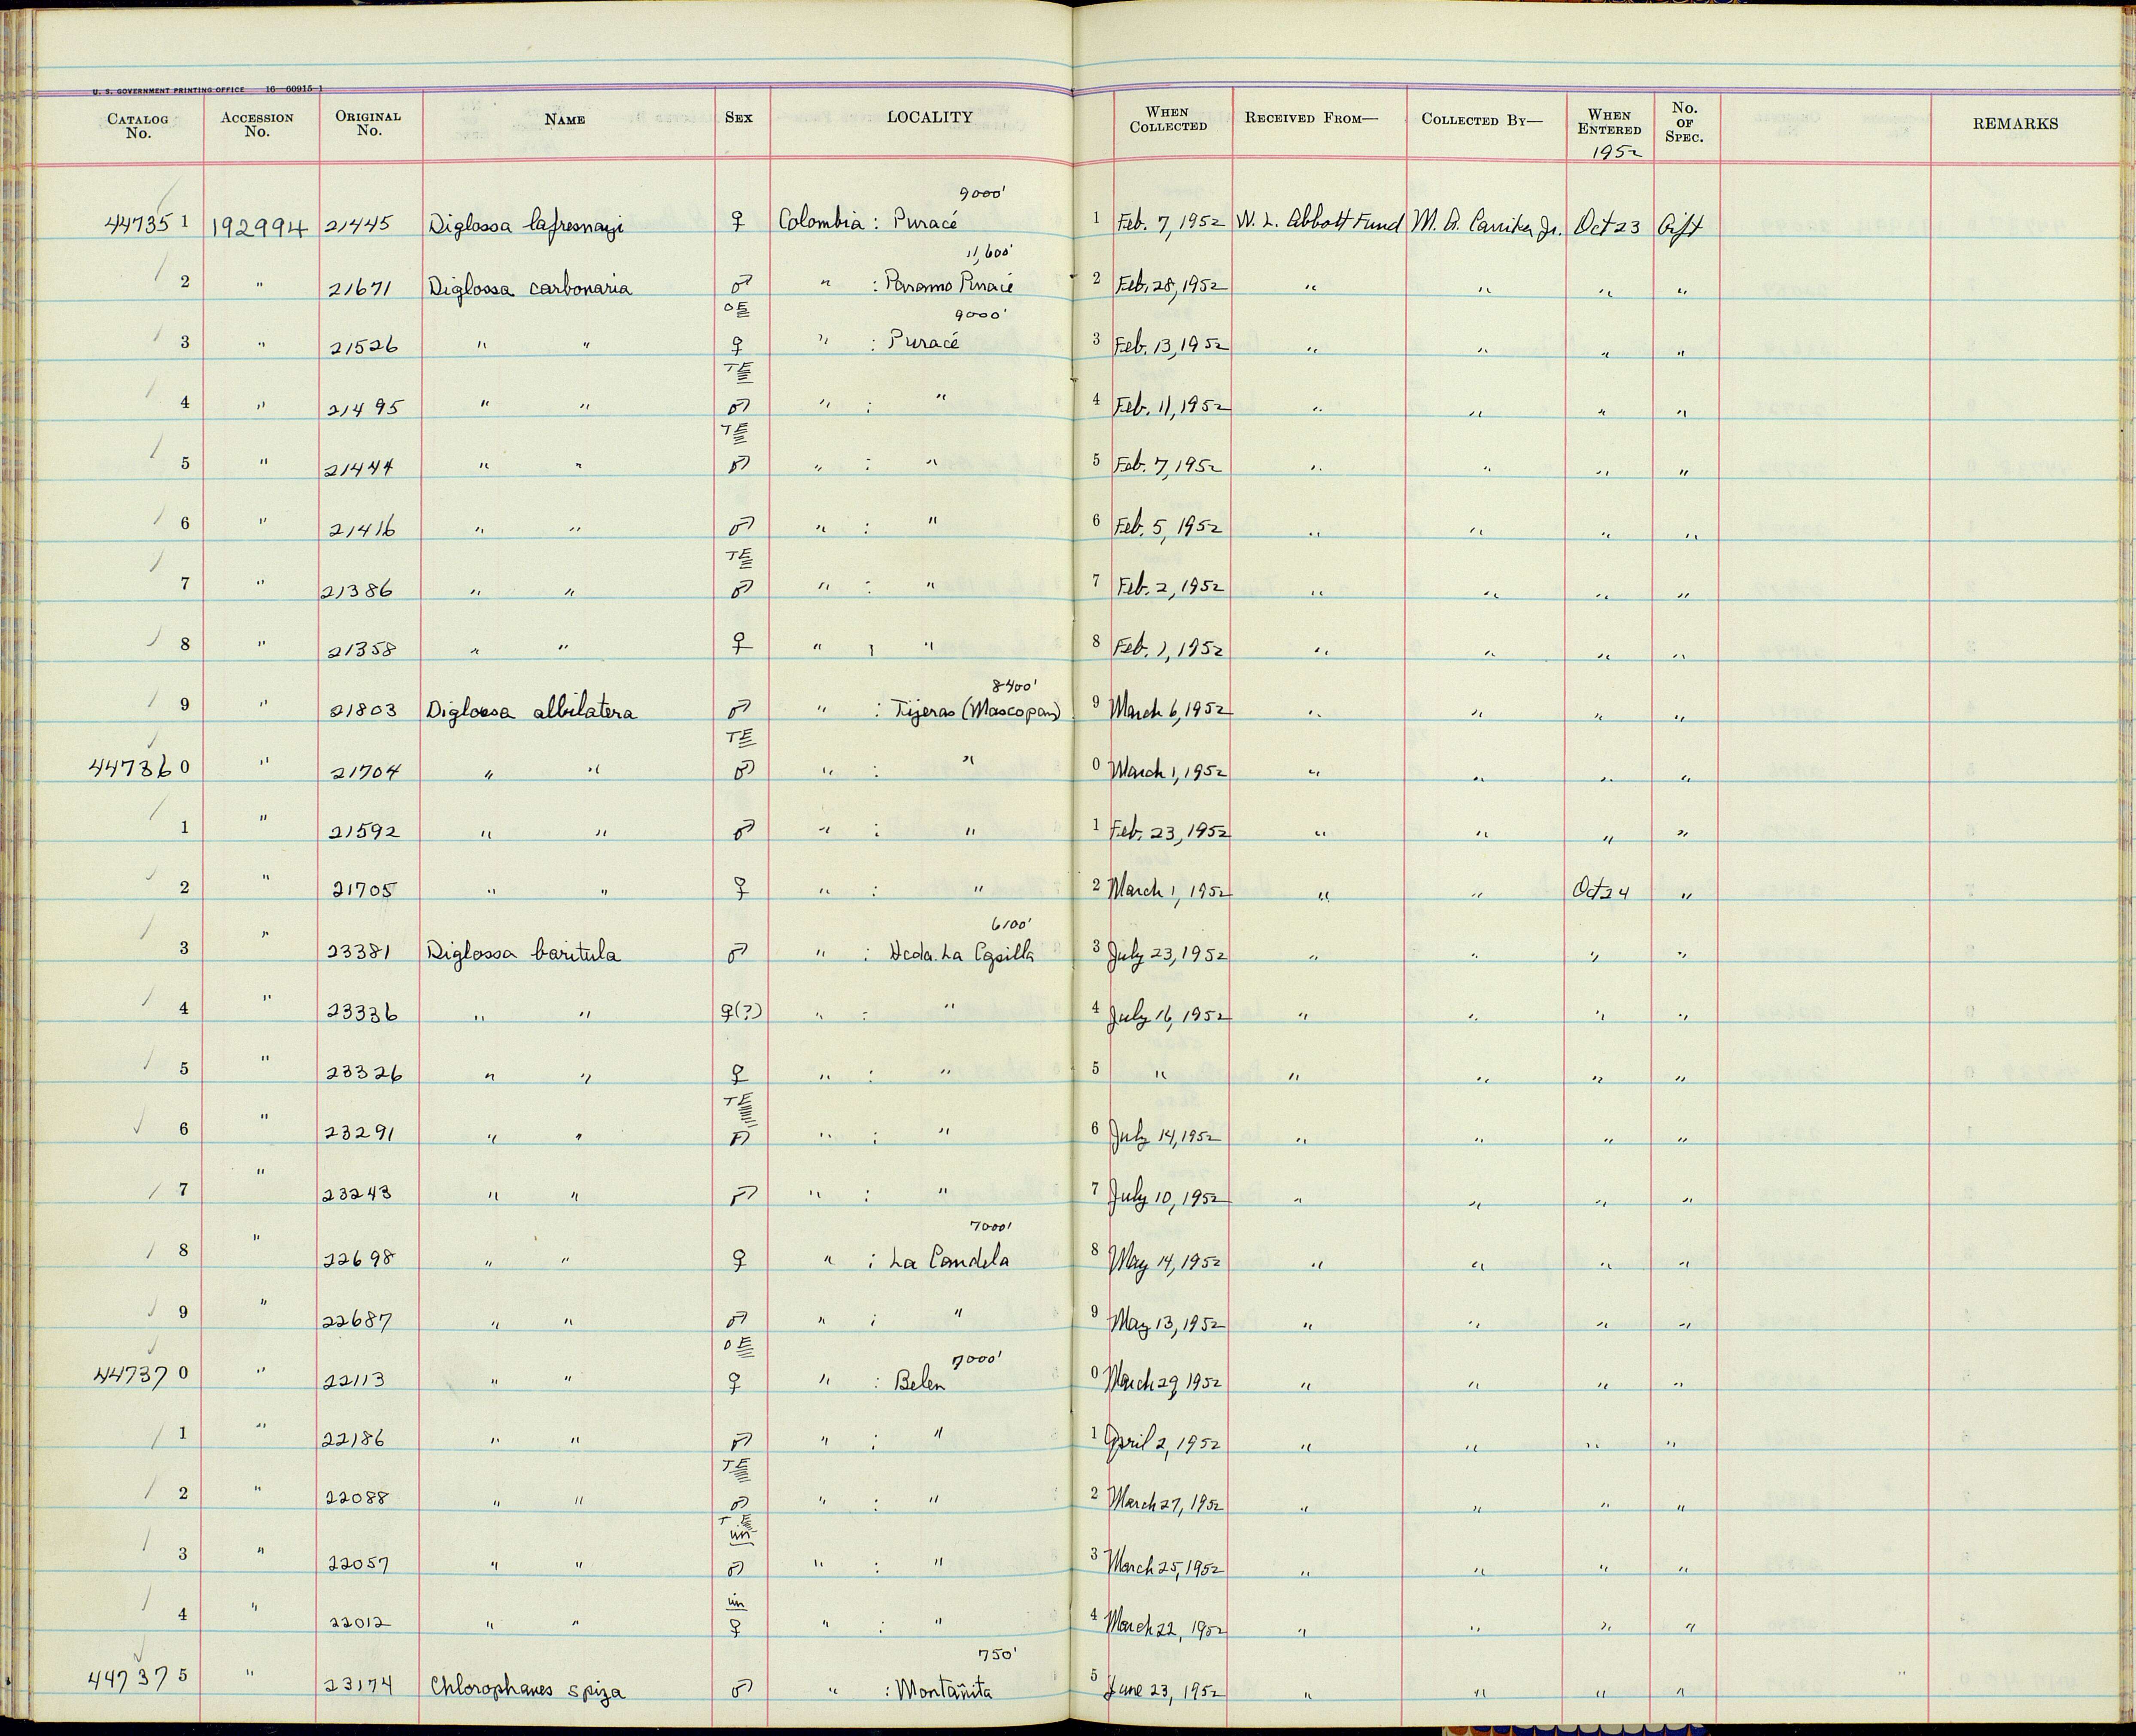 U. S. GOVERNMENT PRINTING OFFICE 16—60915-1
CATALOG No. ACCESSION No. ORIGINAL No. NAME SEX LOCALITY WHEN COLLECTED RECEIVED FROM— COLLECTED BY— WHEN ENTERED 1952 No. OF SPEC. REMARKS
9000'
447351 192994 21445 Diglossa lafresnayi ♀ Colombia : Puracé 1 Feb. 7, 1952 W. L. Abbott Fund M. A. Carriker Jr. Oct 23 Gift
11,600'
2 " 21671 Diglossa carbonaria ♂ " : Paramo Puracé 2 Feb. 28, 1952 " " " "
OE 9000'
3 " 21526 " " ♀ " : Puracé 3 Feb. 13, 1952 " " " "
TE
4 " 21495 " " ♂ " : " 4 Feb. 11, 1952 " " " "
TE
5 " 21444 " " ♂ " : " 5 Feb. 7, 1952 " " " "
6 " 21416 " " ♂ " : " 6 Feb. 5, 1952 " " " "
TE
7 " 21386 " " ♂ " : " 7 Feb. 2, 1952 " " " "
8 " 21358 " " ♀ " : " 8 Feb. 1, 1952 " " " "
8400'
9 " 21803 Diglossa albilatera ♂ " : Tijeras (Moscopan) 9 March 6, 1952 " " " "
TE
447360 " 21704 " " ♂ " : " 0 March 1, 1952 " " " "
1 " 21592 " " ♂ " : " 1 Feb. 23, 1952 " " " "
2 " 21705 " " ♀ " : " 2 March 1, 1952 " " Oct 24 "
6100'
3 " 23381 Diglossa baritula ♂ " : Hcda. La Casilla 3 July 23, 1952 " " " "
4 " 23336 " " ♀(?) " : " 4 July 16, 1952 " " " "
5 " 23326 " " ♀ " : " 5 " " " " "
TE
6 " 23291 " " ♂ " : " 6 July 14, 1952 " " " "
7 " 23243 " " ♂ " : " 7 July 10, 1952 " " " "
7000'
8 " 22698 " " ♀ " : La Candela 8 May 14, 1952 " " " "
9 " 22687 " " ♂ " : " 9 May 13, 1952 " " " "
OE 7000'
447370 " 22113 " " ♀ " : Belen 0 March 29, 1952 " " " "
1 " 22186 " " ♂ " : " 1 April 2, 1952 " " " "
TE
2 " 22088 " " ♂ " : " 2 March 27, 1952 " " " "
TE
im
3 " 22057 " " ♂ " : " 3 March 25, 1952 " " " "
im
4 " 22012 " " ♀ " : " 4 March 22, 1952 " " " "
750'
447375 " 23174 Chlorophanes spiza ♂ " : Montañita 5 June 23, 1952 " " " "